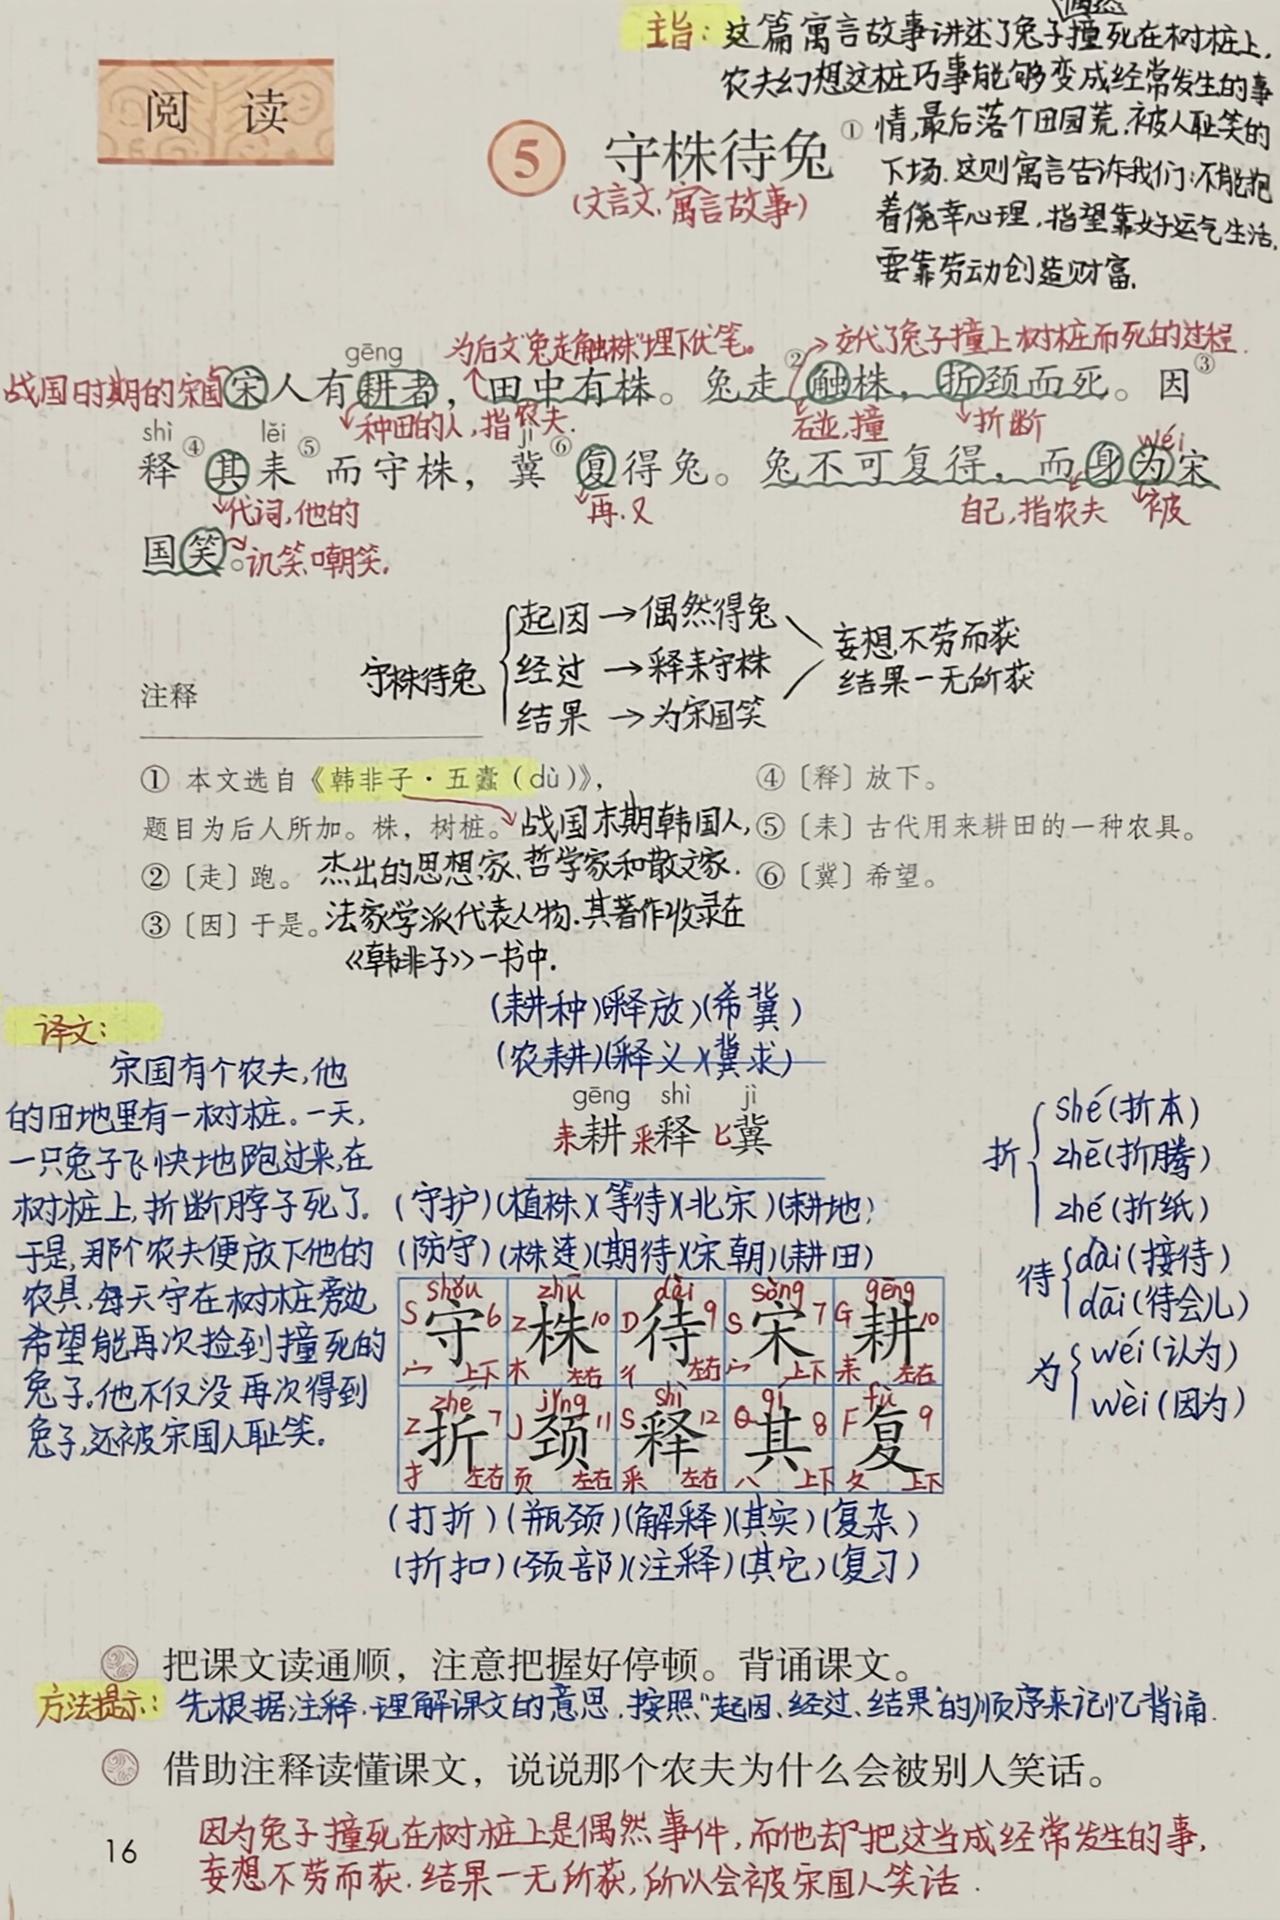 主旨：这篇寓言故事讲述了兔子偶然撞死在树桩上，
农夫幻想这桩巧事能够变成经常发生的事
情，最后落个田园荒，被人耻笑的
下场。这则寓言告诉我们：不能抱
着侥幸心理，指望靠好运气生活，
要靠劳动创造财富。
阅 读
5 守株待兔①
(文言文、寓言故事)
为后文“兔走触株”埋下伏笔。 交代了兔子撞上树桩而死的过程.
gēng
战国时期的宋国 宋人有耕者，田中有株。兔走②触株，折颈而死。因③
种田的人，指农夫. 碰，撞 折断
shì lěi jì wéi
释④其耒⑤而守株，冀⑥复得兔。兔不可复得，而身为宋
代词，他的 再.又 自己，指农夫 被
国笑。讥笑、嘲笑.
守株待兔
起因→偶然得兔
经过→释耒守株
结果→为宋国笑
妄想不劳而获
结果一无所获
注释
① 本文选自《韩非子·五蠹（dù）》，
题目为后人所加。株，树桩。
战国末期韩国人，
杰出的思想家、哲学家和散文家.
法家学派代表人物.其著作收录在
《韩非子》一书中.
② 〔走〕跑。
③ 〔因〕于是。
④ 〔释〕放下。
⑤ 〔耒〕古代用来耕田的一种农具。
⑥ 〔冀〕希望。
译文：
宋国有个农夫，他
的田地里有一树桩。一天，
一只兔子飞快地跑过来，在
树桩上，折断脖子死了.
于是，那个农夫便放下他的
农具，每天守在树桩旁边
希望能再次捡到撞死的
兔子。他不仅没再次得到
兔子，还被宋国人耻笑。
(耕种)(释放)(希冀)
(农耕)(释义)(冀求)
gēng shì jì
耒耕 釆释 匕冀
(守护)(植株)(等待)(北宋)(耕地)
(防守)(株连)(期待)(宋朝)(耕田)
shǒu zhū dài sòng gēng
S守6 Z株10 D待9 S宋7 G耕10
宀 上下 木 左右 彳 左右 宀 上下 耒 左右
zhé jǐng shì qí fù
Z折7 J颈11 S释12 Q其8 F复9
扌 左右 页 左右 釆 左右 八 上下 夂 上下
(打折)(瓶颈)(解释)(其实)(复杂)
(折扣)(颈部)(注释)(其它)(复习)
折
shé(折本)
zhē(折腾)
zhé(折纸)
待
dài(接待)
dāi(待会儿)
为
wéi(认为)
wèi(因为)
把课文读通顺，注意把握好停顿。背诵课文。
方法提示：先根据注释.理解课文的意思.按照“起因、经过、结果”的顺序来记忆背诵.
借助注释读懂课文，说说那个农夫为什么会被别人笑话。
因为兔子撞死在树桩上是偶然事件，而他却把这当成经常发生的事，
妄想不劳而获.结果一无所获，所以会被宋国人笑话.
16